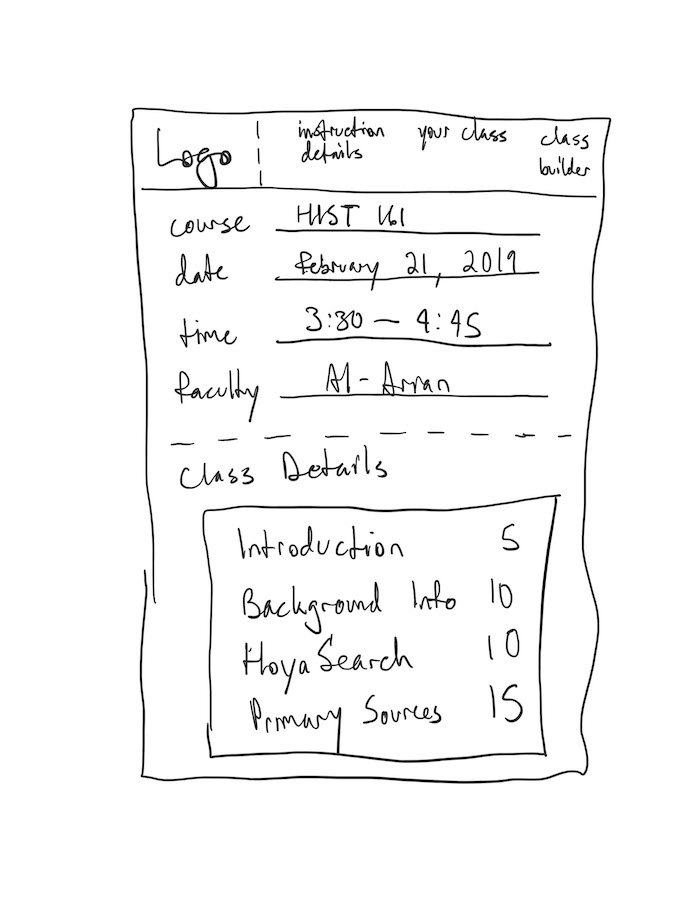 Logo
instruction details
your class
class builder
course HIST 161
date February 21, 2019
time 3:30 – 4:45
faculty Al-Arian
Class Details
Introduction 5
Background Info 10
HoyaSearch 10
Primary Sources 15